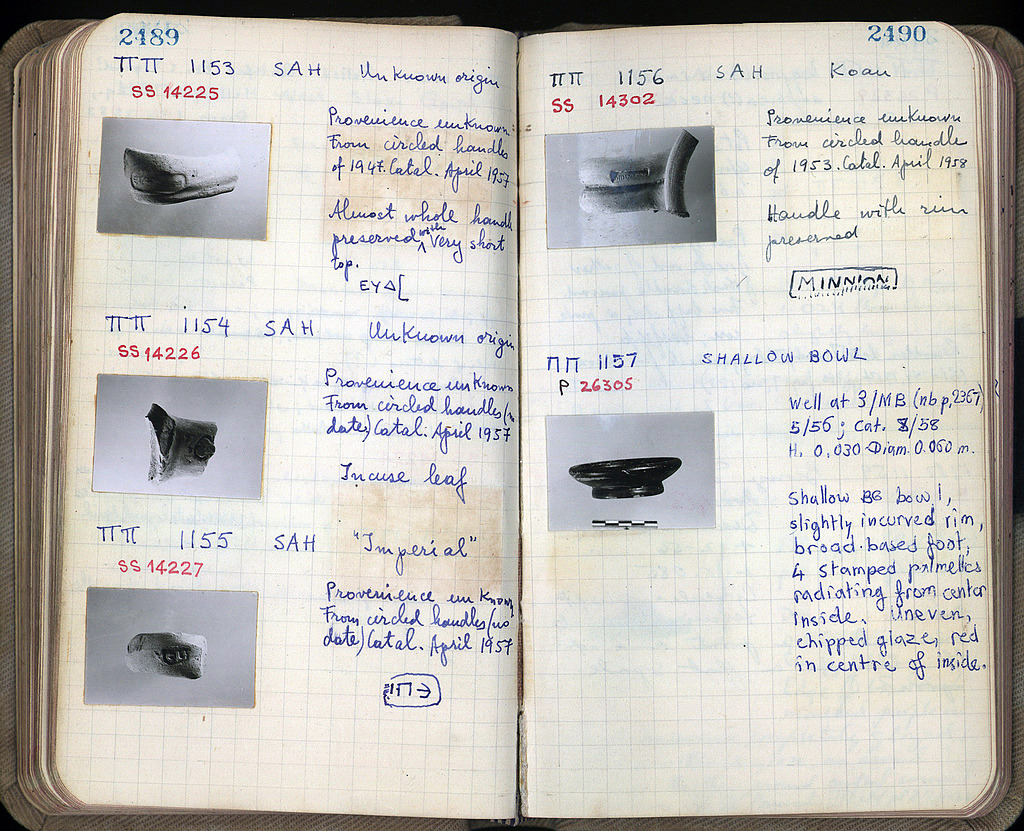 2489
ΠΠ 1153 SAH Unknown origin
SS 14225
Provenience unknown
From circled handles
of 1947. Catal. April 1957
Almost whole handle
preserved, with very short
top.
ΕΥΔ[
ΠΠ 1154 SAH Unknown origin
SS 14226
Provenience unknown
From circled handles (no
date) Catal. April 1957
Incuse leaf
ΠΠ 1155 SAH "Imperial"
SS 14227
Provenience unknown
From circled handles (no
date) Catal. April 1957
2490
ΠΠ 1156 SAH Koan
SS 14302
Provenience unknown
From circled handle
of 1953. Catal. April 1958
Handle with rim
preserved
ΜΙΝΝΙΩΝ
ΠΠ 1157 SHALLOW BOWL
P 26305
Well at 3/MB (nb p. 2367)
5/56; Cat. /58
H. 0.030 Diam. 0.060 m.
Shallow BG bowl,
slightly incurved rim,
broad-based foot,
4 stamped palmettes
radiating from center
inside. Uneven,
chipped glaze, red
in centre of inside.